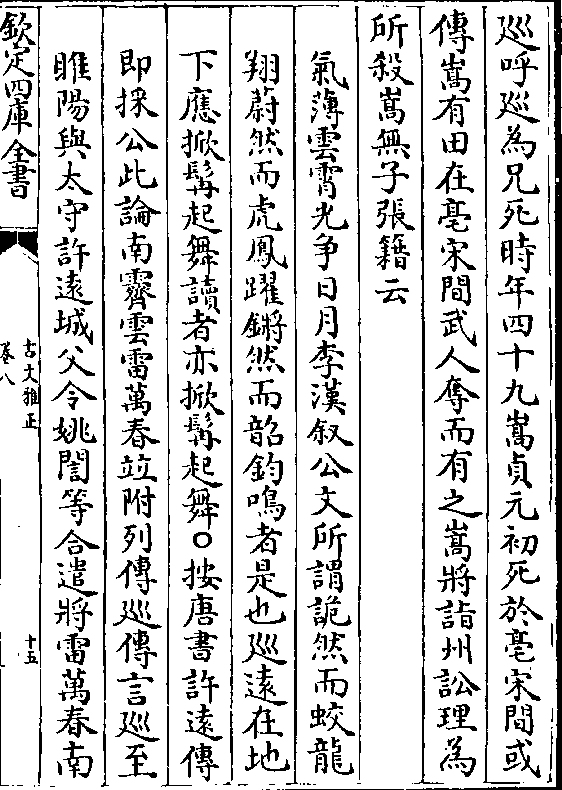 巡呼巡為兄死時年四十九嵩貞元初死於亳宋間或
傳嵩有田在亳宋間武人奪而有之嵩將詣州訟理為
所殺嵩無子張籍云
氣薄雲霄光争日月李漢叙公文所謂詭然而蛟龍
翔蔚然而虎鳳躍鏘然而韶鈞鳴者是也巡遠在地
下應掀髯起舞讀者亦掀髯起舞○按唐書許遠傳
即採公此論南霽雲雷萬春竝附列傳巡傳言巡至
睢陽與太守許遠城父令姚誾等合遣將雷萬春南
欽定四庫全書
古文雅正
卷八
十五